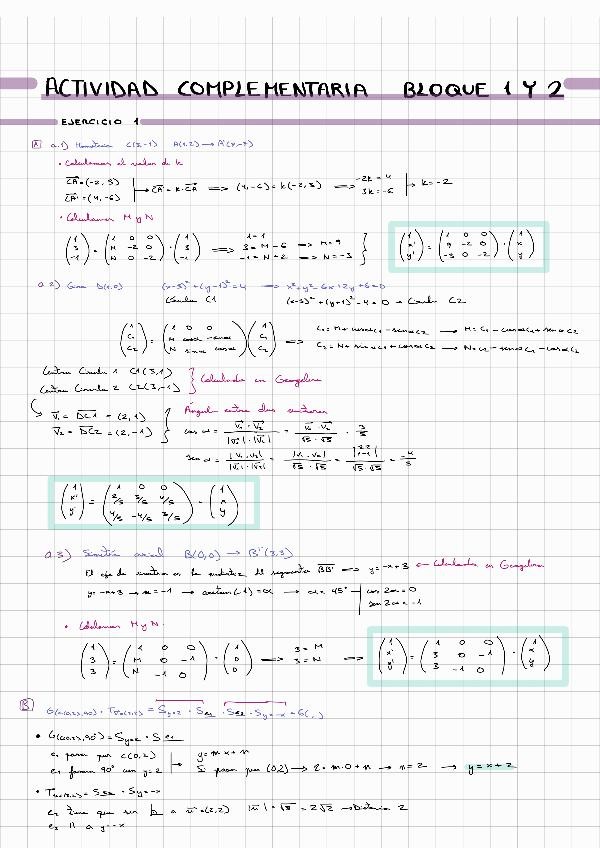 ACTIVIDAD COMPLEMENTARIA BLOQUE 1 Y 2
EJERCICIO 1
A a.1) Homotecia C(3,-1) A(1,2) → A'(7,-7)
• Calculamos el valor de k
CA = (-2, 3)
CA' = (4, -6)
CA' = k · CA ⟹ (4, -6) = k(-2, 3) ⟹ -2k = 4
3k = -6
k = -2
• Calculamos M y N
(1 3 -1) = (1 0 0 / M -2 0 / N 0 -2) · (1 3 -1) ⟹ 1 = 1
3 = M - 6 → M = 9
-1 = N + 2 → N = -3
(1 x' y') = (1 0 0 / 9 -2 0 / -3 0 -2) · (1 x y)
a.2) Giro D(1,0) (x-3)² + (y-1)² = 4 → x² + y² - 6x + 2y + 6 = 0
Círculo C1 (x-3)² + (y+1)² - 4 = 0 → Círculo C2
(1 C1 C2) = (1 0 0 / M cosα -senα / N senα cosα) (1 C1 C2) ⟹
C1 = M + cosα C1 - senα C2 → M = C1 - cosα C1 + senα C2
C2 = N + senα C1 + cosα C2 → N = C2 - senα C1 - cosα C2
Centro Círculo 1 C1(3,1)
Centro Círculo 2 C2(3,-1)
Calculado en Geogebra
V1 = DC1 = (2, 1)
V2 = DC2 = (2, -1)
Ángulo entre dos vectores
cos α = V1 · V2 / |V1| · |V2| = V1 · V2 / √5 · √5 = 3/5
sen α = |V1 · V2| / |V1| · |V2| = |V1 · V2| / √5 · √5 = |2 2 / 1 -1| / √5 · √5 = -4/5
(1 x' y') = (1 0 0 / 2/5 3/5 4/5 / 4/5 -4/5 3/5) · (1 x y)
a.3) Simetría axial B(0,0) → B'(3,3)
El eje de simetría es la mediatriz del segmento BB' ⟹ y = -x + 3 ← Calculado en Geogebra
y = -x + 3 → m = -1 → arctan(-1) = α → α = 45°
cos 2α = 0
sen 2α = -1
• Calculamos M y N.
(1 3 3) = (1 0 0 / M 0 -1 / N -1 0) · (1 0 0) ⟹ 3 = M
3 = N
⟹ (1 x' y') = (1 0 0 / 3 0 -1 / 3 -1 0) · (1 x y)
B G(C(0,2),90°) · T(2,2) = Sy=2 · Se1 · Se2 · Sy=-x = G( , )
• G(C(0,2),90°) = Sy=2 · Se1
e1 pasa por C(0,2)
e1 forma 90° con y = 2
y = mx + n
Si pasa por (0,2) → 2 = m·0 + n → n = 2 → y = x + 2
• T(2,2) = Se2 · Sy=-x
e2 tiene que ser ⊥ a u = (2,2) |u| = √8 = 2√2 → Distancia 2
e2 ∥ a y = -x